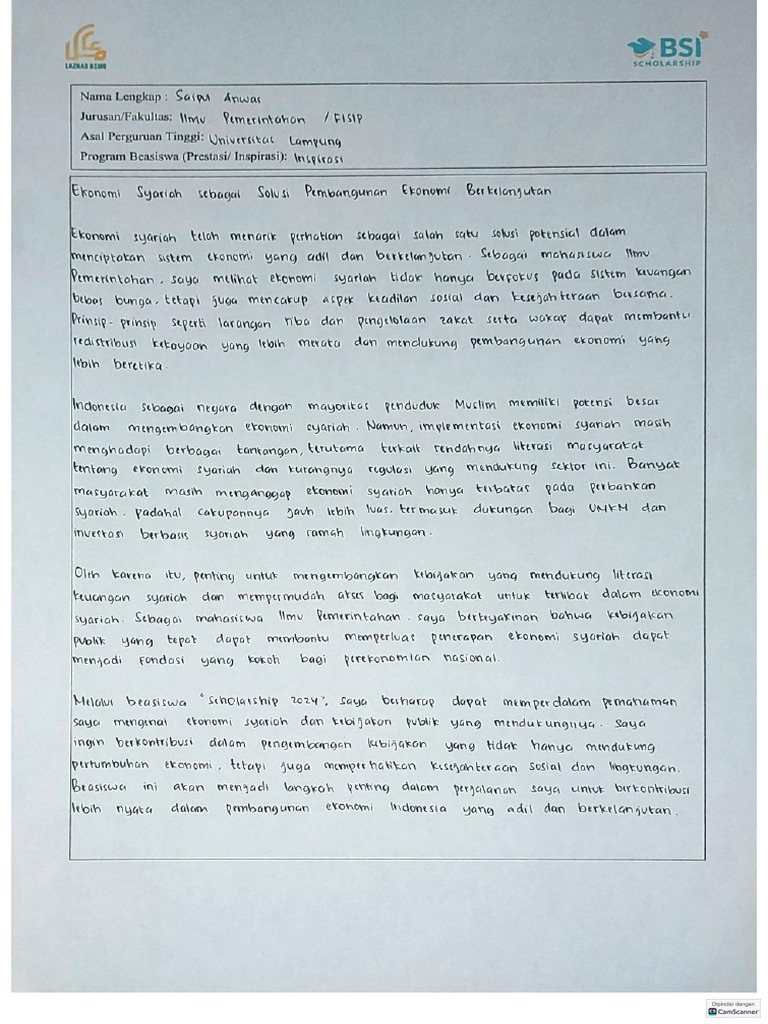 LAZNAS BSMU
BSI
SCHOLARSHIP
Nama Lengkap : Saipul Anwar
Jurusan/Fakultas: Ilmu Pemerintahan / FISIP
Asal Perguruan Tinggi: Universitas Lampung
Program Beasiswa (Prestasi/ Inspirasi): Inspirasi
Ekonomi Syariah sebagai Solusi Pembangunan Ekonomi Berkelanjutan
Ekonomi syariah telah menarik perhatian sebagai salah satu solusi potensial dalam
menciptakan sistem ekonomi yang adil dan berkelanjutan. Sebagai mahasiswa Ilmu
Pemerintahan, saya melihat ekonomi syariah tidak hanya berfokus pada sistem keuangan
bebas bunga, tetapi juga mencakup aspek keadilan sosial dan kesejahteraan bersama.
Prinsip-prinsip seperti larangan riba dan pengelolaan zakat serta wakaf dapat membantu
redistribusi kekayaan yang lebih merata dan mendukung pembangunan ekonomi yang
lebih beretika.
Indonesia sebagai negara dengan mayoritas penduduk Muslim memiliki potensi besar
dalam mengembangkan ekonomi syariah. Namun, implementasi ekonomi syariah masih
menghadapi berbagai tantangan, terutama terkait rendahnya literasi masyarakat
tentang ekonomi syariah dan kurangnya regulasi yang mendukung sektor ini. Banyak
masyarakat masih menganggap ekonomi syariah hanya terbatas pada perbankan
syariah, padahal cakupannya jauh lebih luas, termasuk dukungan bagi UMKM dan
investasi berbasis syariah yang ramah lingkungan.
Oleh karena itu, penting untuk mengembangkan kebijakan yang mendukung literasi
keuangan syariah dan mempermudah akses bagi masyarakat untuk terlibat dalam ekonomi
syariah. Sebagai mahasiswa Ilmu Pemerintahan, saya berkeyakinan bahwa kebijakan
publik yang tepat dapat membantu memperluas penerapan ekonomi syariah dapat
menjadi fondasi yang kokoh bagi perekonomian nasional.
Melalui beasiswa "Scholarship 2024", saya berharap dapat memperdalam pemahaman
saya mengenai ekonomi syariah dan kebijakan publik yang mendukungnya. Saya
ingin berkontribusi dalam pengembangan kebijakan yang tidak hanya mendukung
pertumbuhan ekonomi, tetapi juga memperhatikan kesejahteraan sosial dan lingkungan.
Beasiswa ini akan menjadi langkah penting dalam perjalanan saya untuk berkontribusi
lebih nyata dalam pembangunan ekonomi Indonesia yang adil dan berkelanjutan.
Dipindai dengan
CamScanner